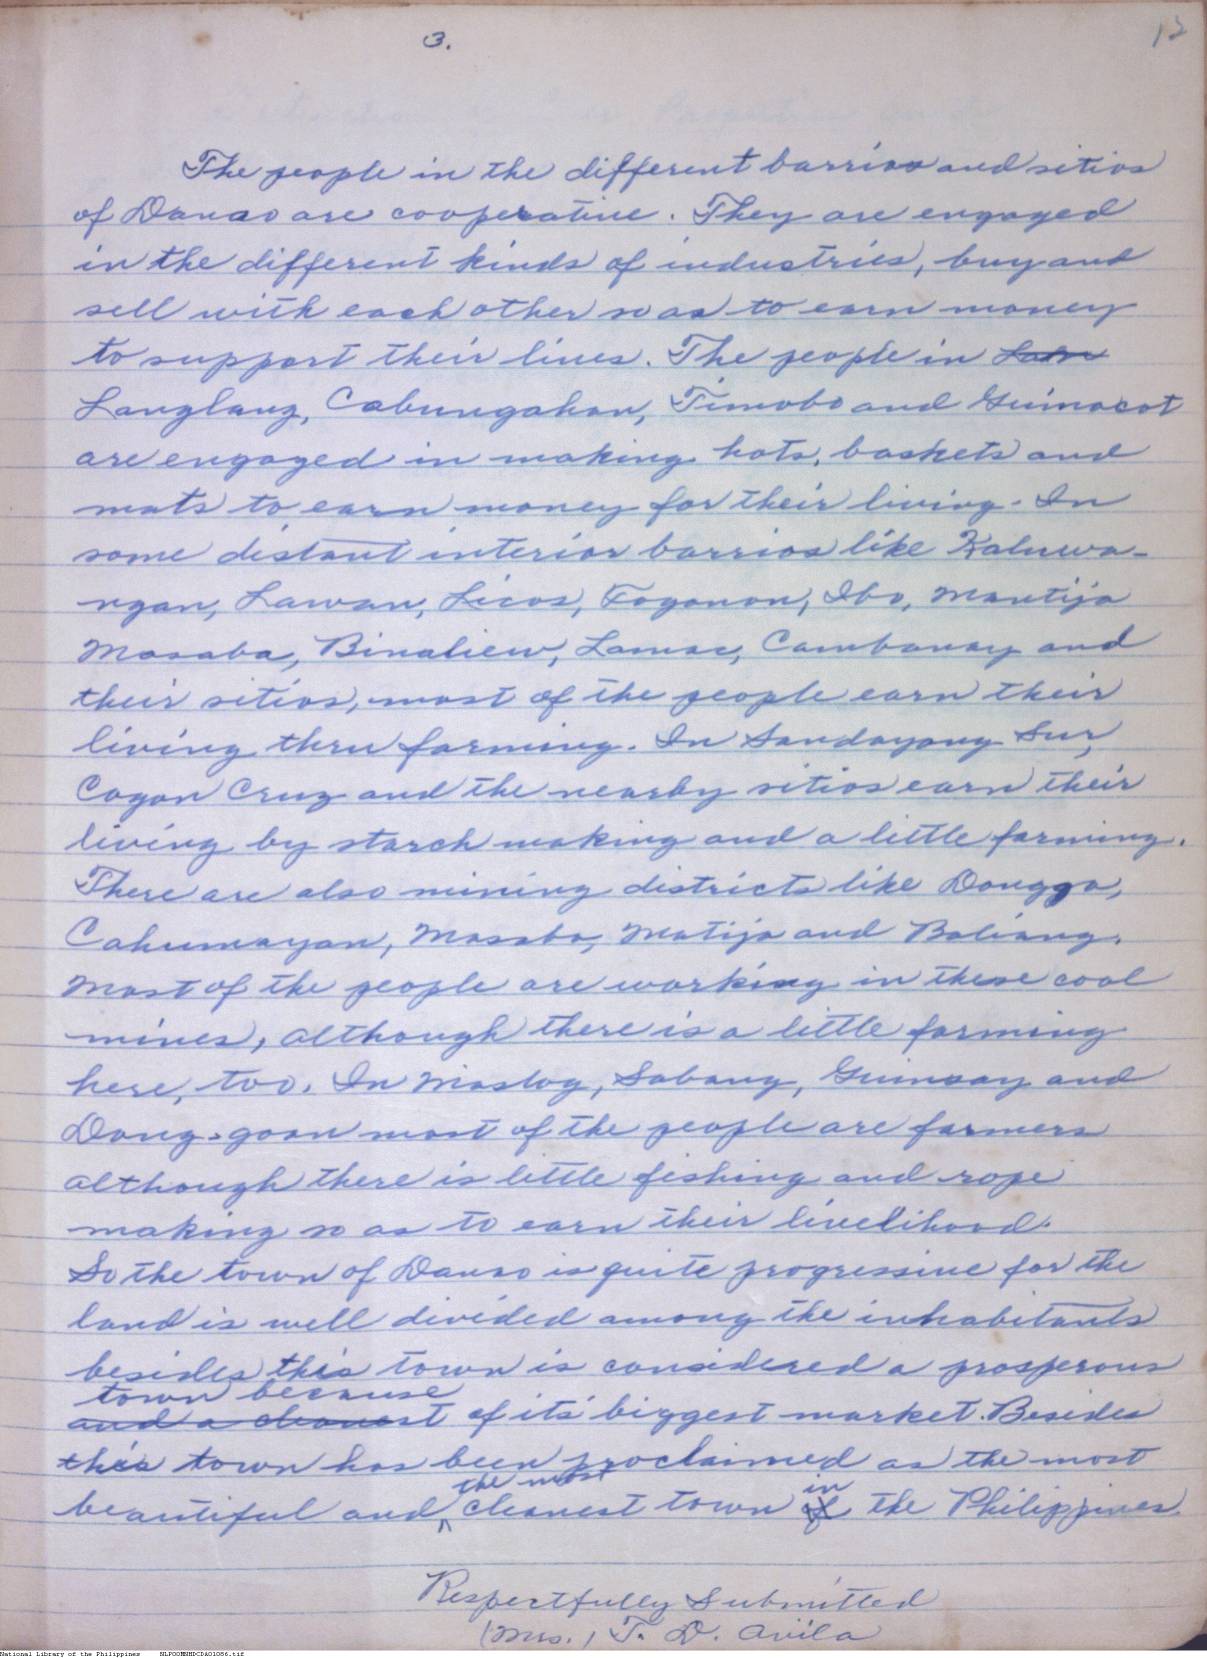 3.
12
The people in the different barrios and sitios
of Danao are cooperative. They are engaged
in the different kinds of industries, buy and
sell with each other so as to earn money
to support their lives. The people in
Langlang, Cabungahan, Timobo and Guinacot
are engaged in making hats, baskets and
mats to earn money for their living. In
some distant interior barrios like Kaluwa-
ngan, Lawan, Licos, Togonon, Ibo, Mantija
Masaba, Binaliew, Lamac, Cambanay and
their sitios, most of the people earn their
living thru farming. In Sandayong Sur,
Cogon Cruz and the nearby sitios earn their
living by starch making and a little farming.
There are also mining districts like Dongga,
Cahumayan, Masaba, Matija and Baliang.
Most of the people are working in these coal
mines, although there is a little farming
here, too. In Maslog, Sabang, Guinsay and
Dung-goan most of the people are farmers
although there is little fishing and rope
making so as to earn their livelihood.
So the town of Danao is quite progressive for the
land is well divided among the inhabitants
besides this town is considered a prosperous
town because
and a cleanest of its biggest market. Besides
this town has been proclaimed as the most
the most in
beautiful and cleanest town of the Philippines.
Respectfully Submitted
(Mrs.) T. D. Avila
National Library of the Philippines NLPOOMNHDCDA01086.tif